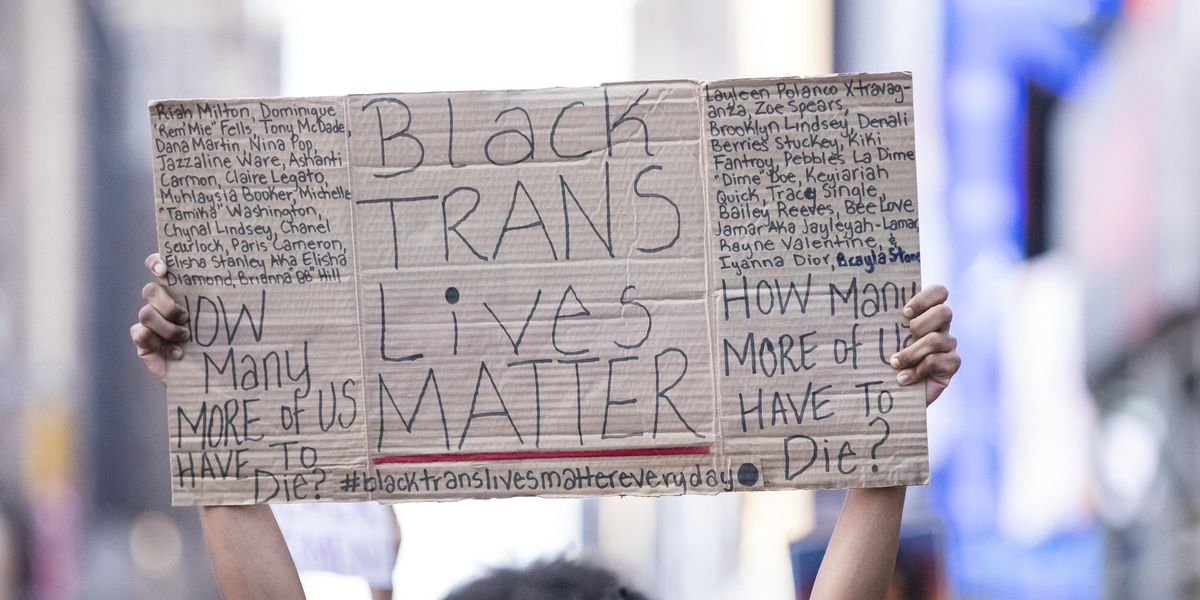 Riah Milton, Dominique
"Remi Mie" Fells, Tony McDade,
Dana Martin, Nina Pop,
Jazzaline Ware, Ashanti
Carmon, Claire Legato,
Muhlaysia Booker, Michelle
"Tamika" Washington,
Chynal Lindsey, Chanel
Scurlock, Paris Cameron,
Elisha Stanley AKA Elisha
Diamond, Brianna "BB" Hill
HOW
Many
MORE of US
HAVE To
Die?
Black
TRANS
Lives
MATTER
#blacktranslivesmattereveryday
Layleen Polanco Xtravag-
anza, Zoe Spears,
Brooklyn Lindsey, Denali
Berries Stuckey, Kiki
Fantroy, Pebbles La Dime
"Dime" Doe, Keyiariah
Quick, Tracey Single,
Bailey Reeves, Bee Love
Jamar Aka Jayleyah-Lamar,
Rayne Valentine, &
Iyanna Dior, Brayla Stone
HOW Many
MORE of US
HAVE To
Die?